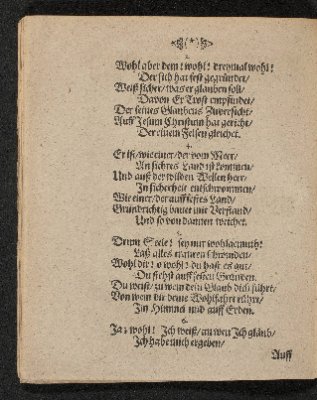 (*)
3.
Wohl aber dem! wohl! dreymal wohl!
Der sich hat fest gegründet/
Weiß sicher/ was er glauben soll/
Davon Er Trost empfindet/
Der seines Glaubens Zuversicht/
Auff Jesum Christum hat gericht/
Der einem Felsen gleichet.
4.
Er ist/ wie einer/ der vom Meer/
An sichres Land ist kommen/
Und auß der wilden Wellen her/
In sicherheit entschwommen/
Wie einer/ der auff festes Land/
Gründrichtig bauet mit Verstand/
Und so von dannen weichet.
5.
Drum Seele! sey nur wohlgemuth!
Laß alles trauren schwinden/
Wohl dir! o wohl! du hast es gut/
Du stehst auff festen Gründen.
Du weist/ zu wem dein Glaub dich führt/
Von wem dir deine Wohlfahrt rührt/
Im Himmel und auff Erden.
6.
Ja; wohl! Ich weiß/ an wen Ich gläub/
Ich habe mich ergeben/
Auff